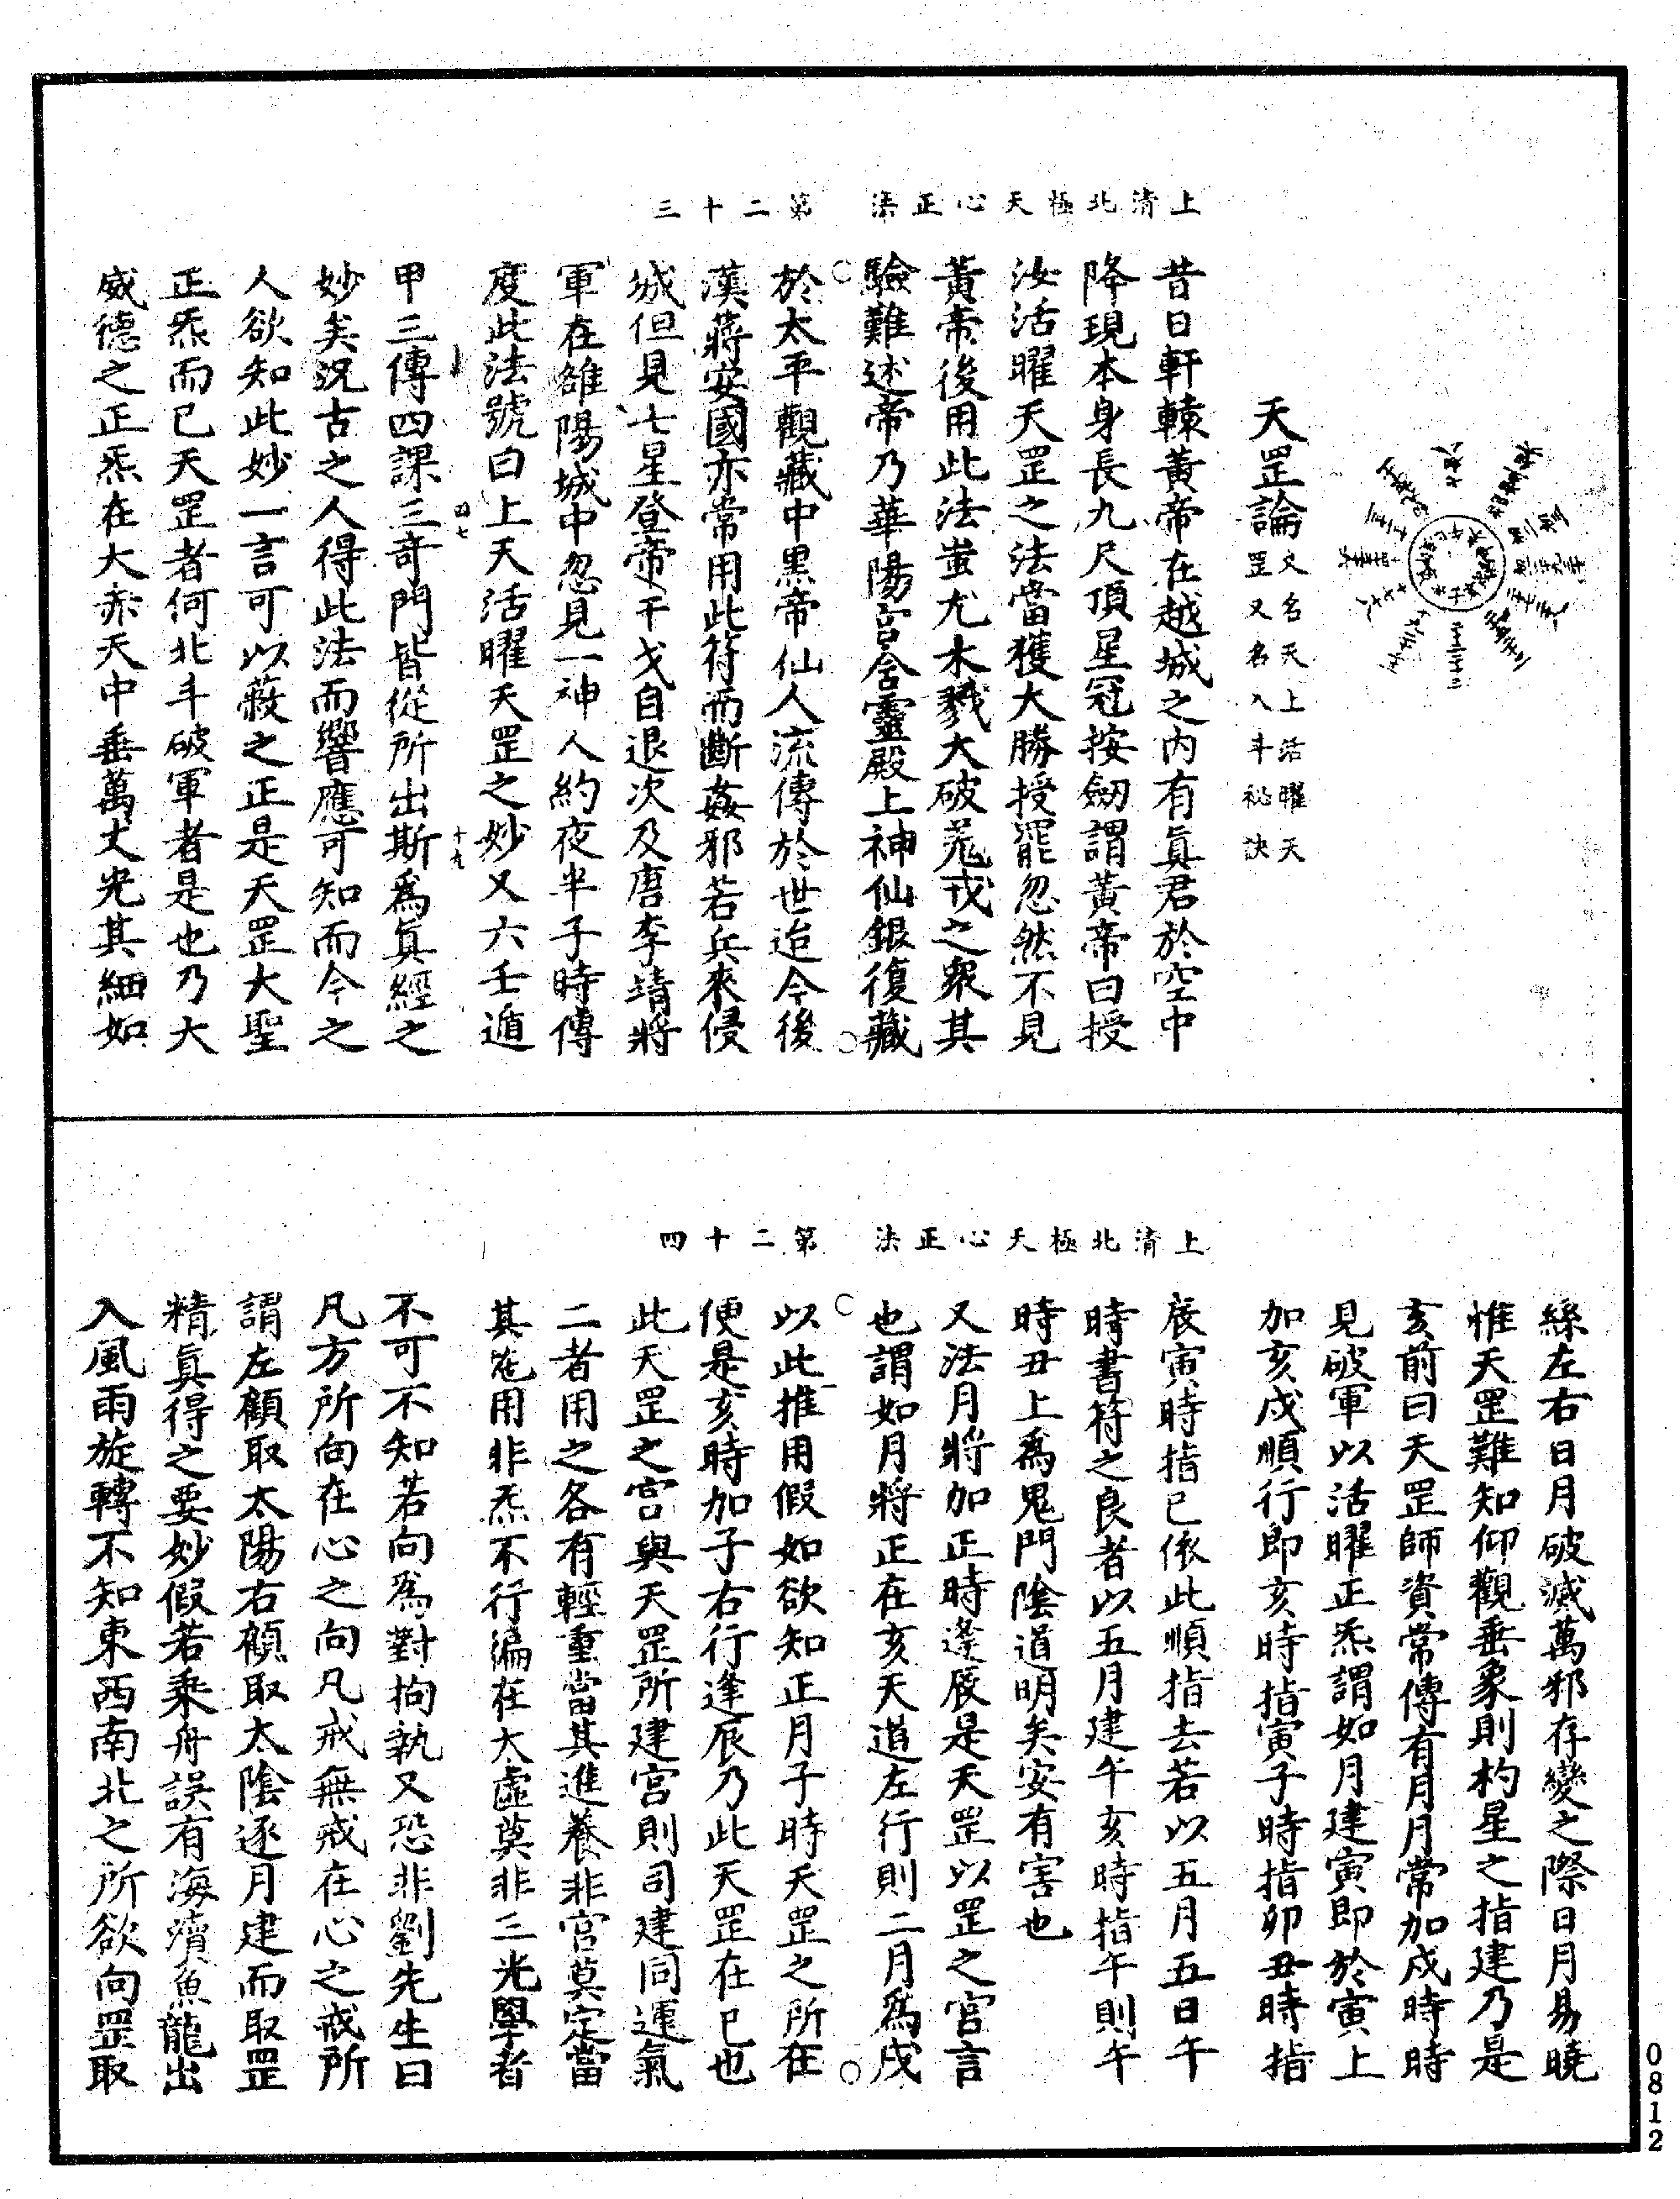 上清北極天心正法　第二十三
天罡論
又名天上活曜天
罡又名入斗祕訣
昔日軒轅黃帝在越城之內有眞君於空中
降現本身長九尺頂星冠按劒謂黃帝曰授
汝活曜天罡之法當獲大勝授罷忽然不見
黃帝後用此法蚩尤木戮大破羌戎之衆其
驗難述帝乃華陽宮含靈殿上神仙銀復藏
於太平觀藏中黑帝仙人流傳於世迨今後
漢蔣安國亦常用此符而斷姦邪若兵來侵
城但見七星登帝干戈自退次及唐李靖將
軍在雒陽城中忽見一神人約夜半子時傳
度此法號曰上天活曜天罡之妙又六壬遁
四七
十九
甲三傳四課三奇門皆從所出斯爲眞經之
妙矣況古之人得此法而響應可知而今之
人欲知此妙一言可以蔽之正是天罡大聖
正炁而已天罡者何北斗破軍者是也乃大
威德之正炁在大赤天中垂萬丈光其細如
上清北極天心正法　第二十四
絲左右日月破滅萬邪存變之際日月易曉
惟天罡難知仰觀垂象則杓星之指建乃是
亥前曰天罡師資常傳有月月常加戌時時
見破軍以活曜正炁謂如月建寅即於寅上
加亥戌順行即亥時指寅子時指卯丑時指
辰寅時指巳依此順指去若以五月五日午
時書符之良者以五月建午亥時指午則午
時丑上爲鬼門陰道明矣安有害也
又法月將加正時逢辰是天罡以罡之宮言
也謂如月將正在亥天道左行則二月爲戌
以此推用假如欲知正月子時天罡之所在
便是亥時加子右行逢辰乃此天罡在巳也
此天罡之宮與天罡所建宮則司建同運氣
二者用之各有輕重當其進養非官莫定當
其用非炁不行徧在大虛莫非三光學者
不可不知若向爲對拘執又恐非劉先生曰
凡方所向在心之向凡戒無戒在心之戒所
謂左顧取太陽右顧取太陰逐月建而取罡
精眞得之要妙假若乘舟誤有海濱魚龍出
入風雨旋轉不知東西南北之所欲向罡取
0812